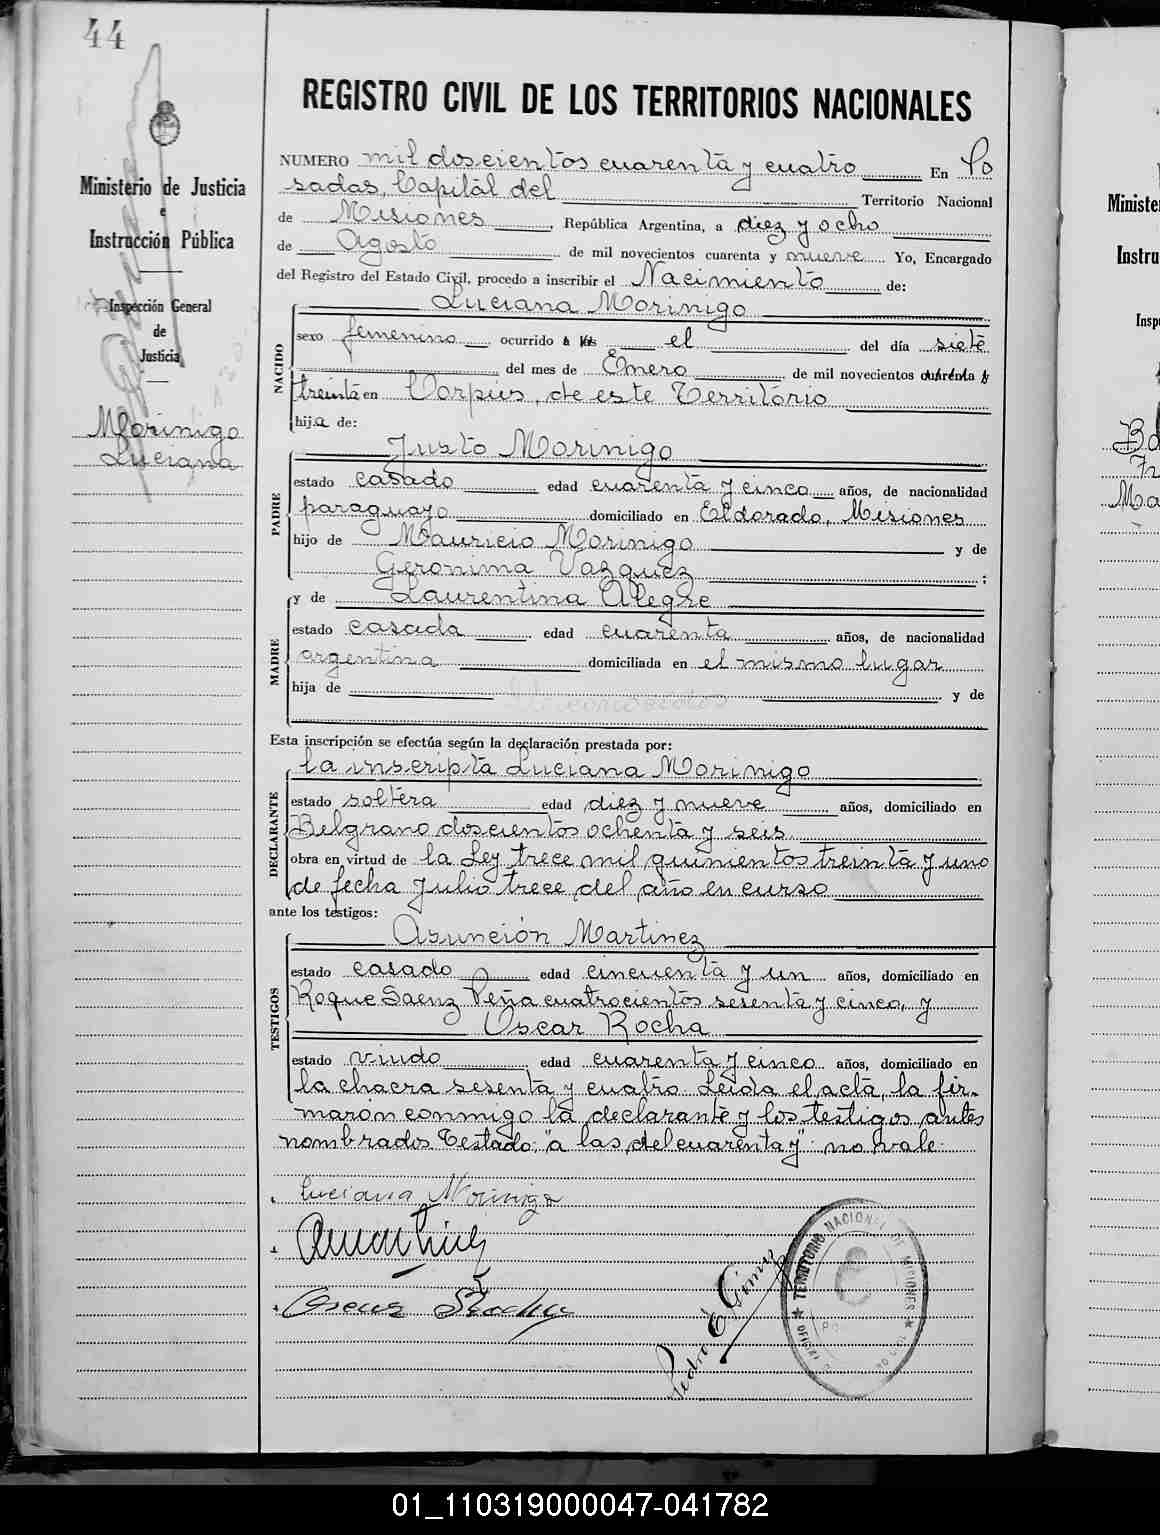 44
REGISTRO CIVIL DE LOS TERRITORIOS NACIONALES
Ministerio de Justicia
e
Instrucción Pública
Inspección General
de
Justicia
Morinigo
Luciana
NUMERO mil doscientos cuarenta y cuatro En Po
sadas, Capital del Territorio Nacional
de Misiones, República Argentina, a diez y ocho
de Agosto de mil novecientos cuarenta y nueve Yo, Encargado
del Registro del Estado Civil, procedo a inscribir el Nacimiento de:
NACIDO
Luciana Morinigo
sexo femenino ocurrido a las el del día siete
del mes de Enero de mil novecientos cuarenta y
treinta en Corpus, de este Territorio
hija de:
PADRE
Justo Morinigo
estado casado edad cuarenta y cinco años, de nacionalidad
paraguayo domiciliado en Eldorado, Misiones
hijo de Mauricio Morinigo y de
Geronima Vazquez ;
MADRE
y de Laurentina Alegre
estado casada edad cuarenta años, de nacionalidad
argentina domiciliada en el mismo lugar
hija de Desconocidos y de
Esta inscripción se efectúa según la declaración prestada por:
DECLARANTE
la inscripta Luciana Morinigo
estado soltera edad diez y nueve años, domiciliado en
Belgrano doscientos ochenta y seis
obra en virtud de la Ley trece mil quinientos treinta y uno
de fecha Julio trece del año en curso
ante los testigos:
TESTIGOS
Asunción Martinez
estado casado edad cincuenta y un años, domiciliado en
Roque Saenz Peña cuatrocientos sesenta y cinco, y
Oscar Rocha
estado viudo edad cuarenta y cinco años, domiciliado en
la chacra sesenta y cuatro. Leida el acta, la fir-
maron conmigo la declarante y los testigos antes
nombrados. Testado; "a las, del cuarenta y": no vale.
Luciana Morinigo
Oscar Rocha
Pedro E Gimenez
TERRITORIO NACIONAL DE MISIONES
01_110319000047-041782
Ministe
Instru
Insp